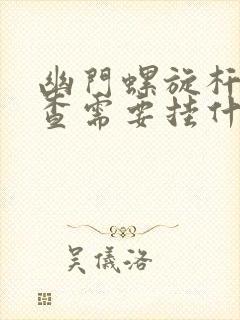 幽門螺旋杆
查需要挂什
吴儀洛